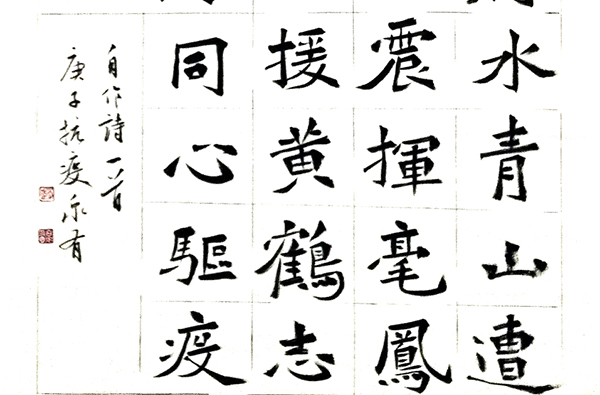 水青山遭
震揮毫鳳
援黄鶴志
同心驅疫
自作詩一首
庚子抗疫永有